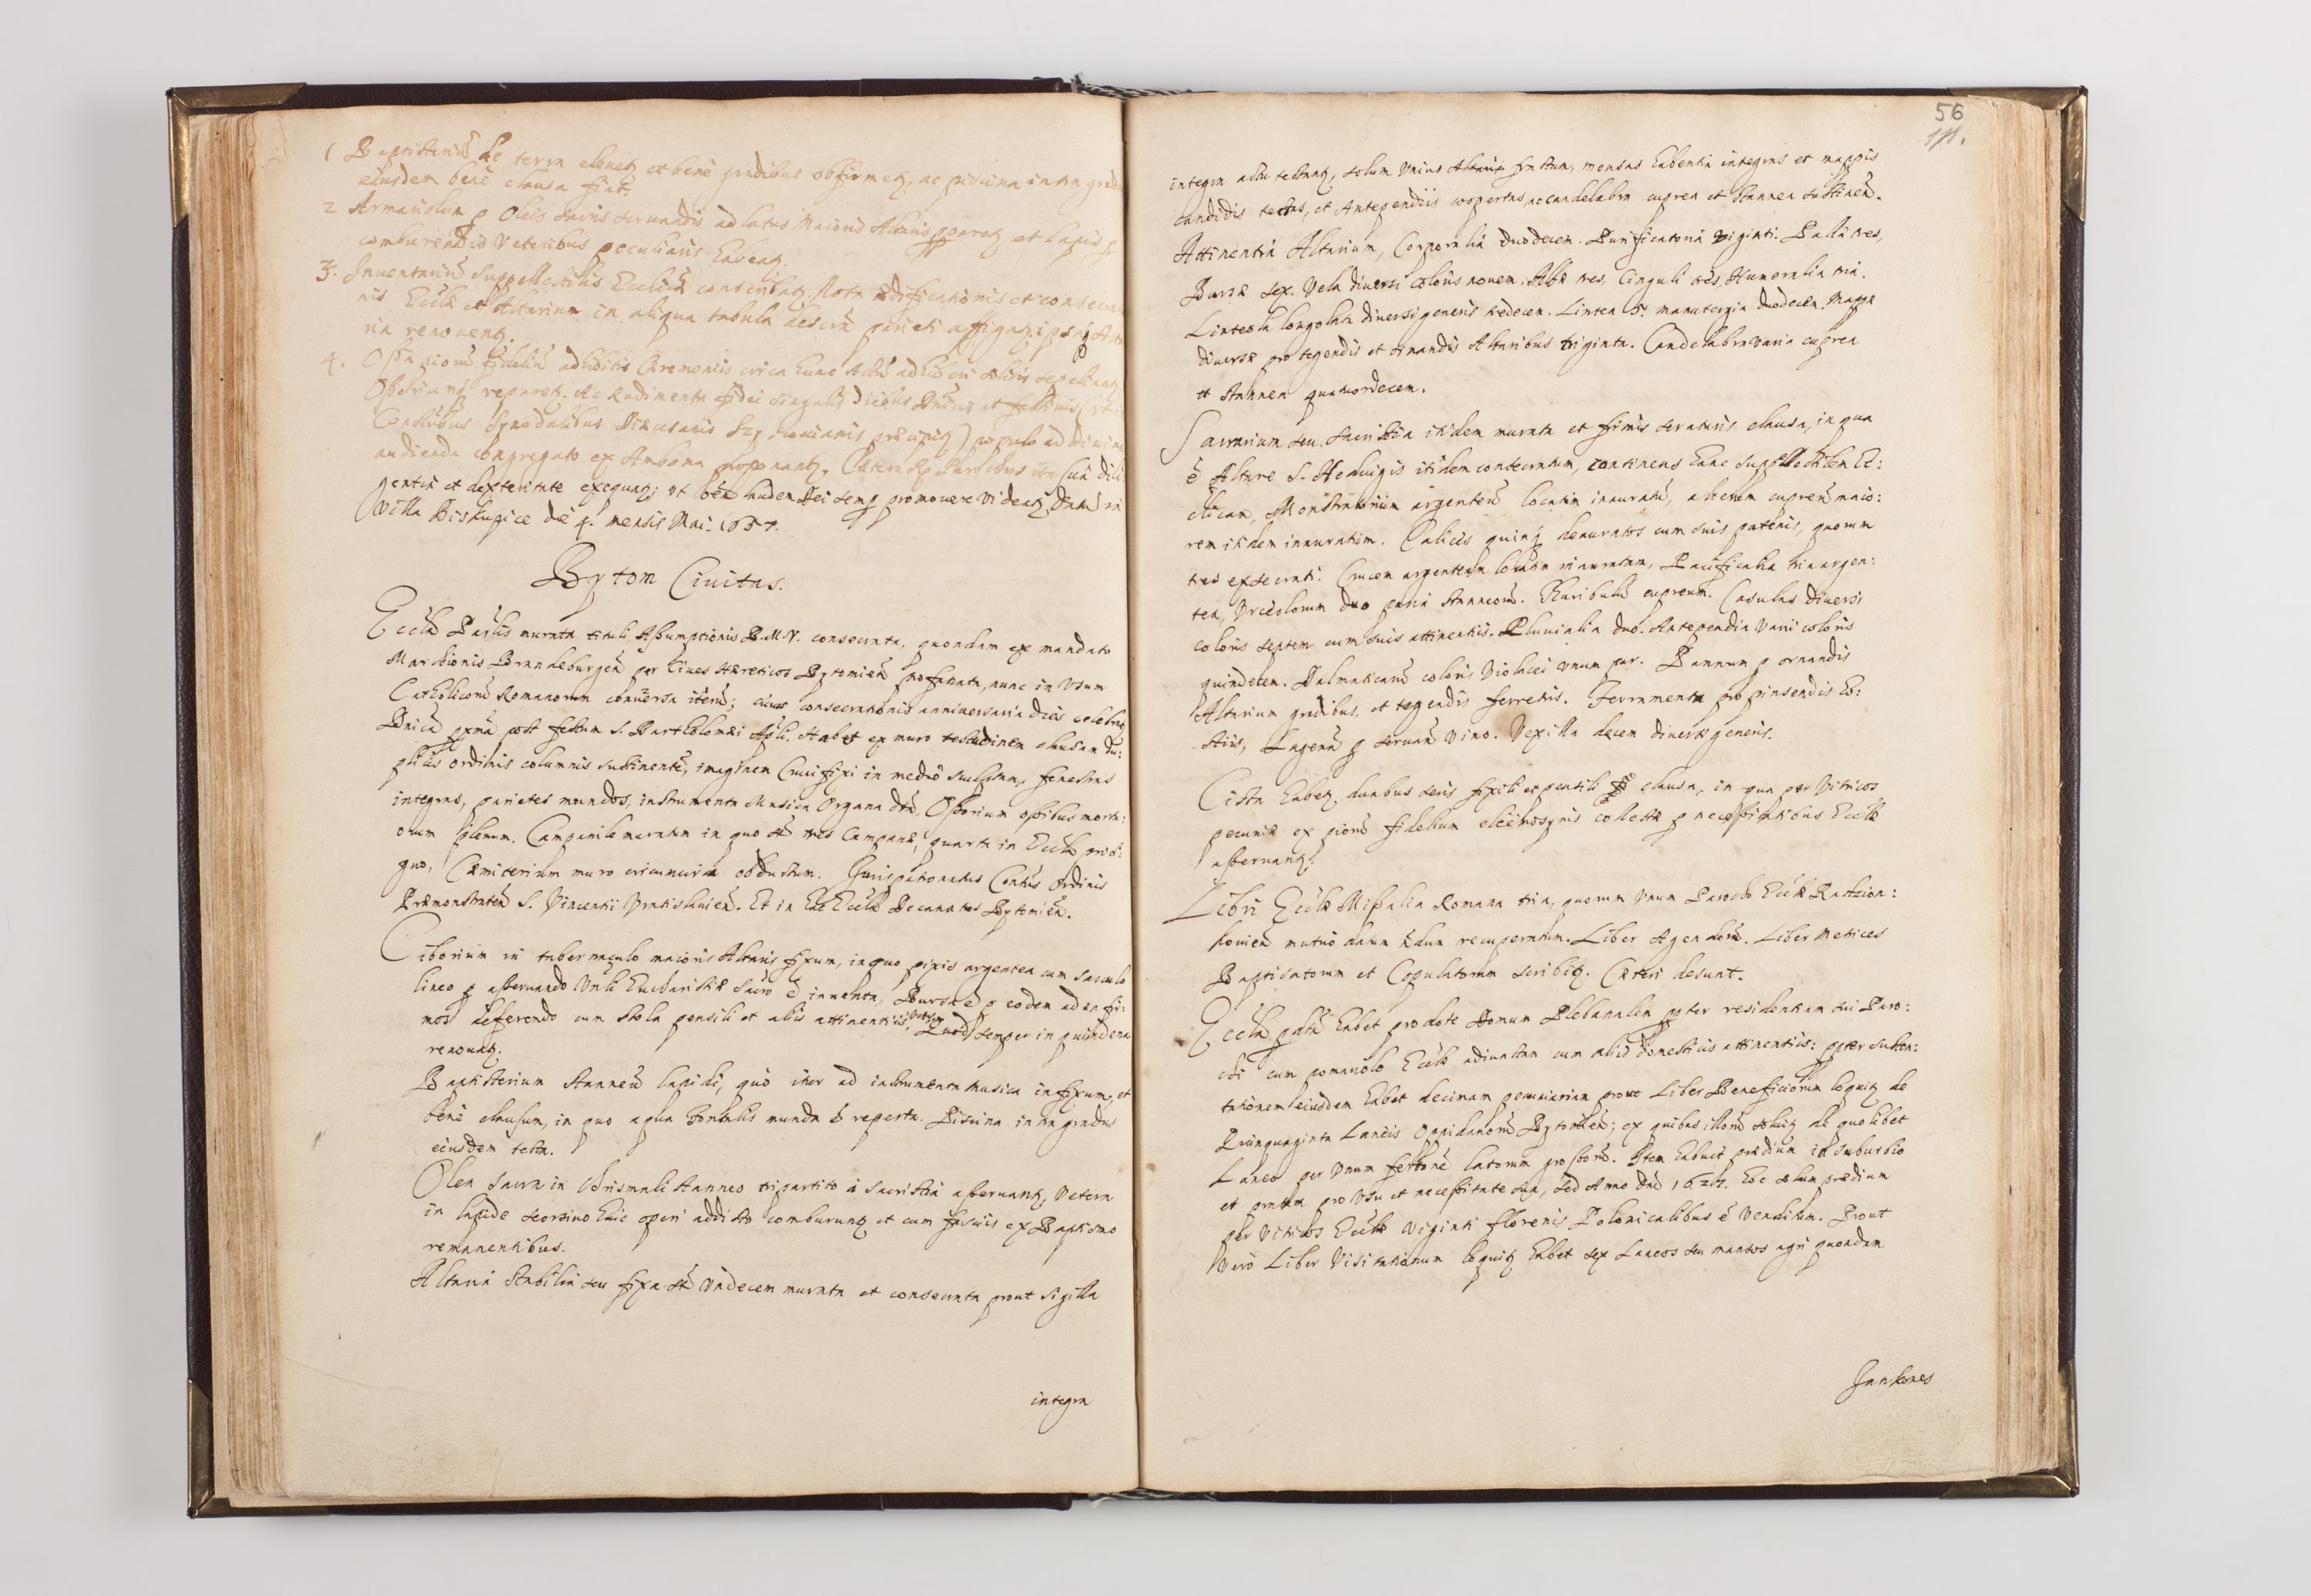 1 Baptisteriũ de terra eleuetz et bene gradibus obfirmetz, ac piscina intra gradus
eiusdem benè clausa fiat.
2 Armariolum p Oleis sacris seruandis ad latus Maioris Altaris paretz et lapis p
comburendis veteribus peculiaris habeatz.
3. Inuentariũ Suppellectilis Ecclicæ conscribatz. Nota ædificationis et consecratio
nis Ecclæ et Altarium in aliqua tabula descrip parieti affigatz
ria renouentz.
4. Ossa piorũ fidelium adhibitis Cæremoniis circa hunc Actũ adhiberi solitis sepeliantz
Ossoriumq reparetz. Ac Rudimenta fidei singulis diebus Dnicis et festiuis
Constitutionibus Synodalibus Diœcesanis præcipitz) populo ad diuina
audienda congregato ex Ambona proponantz. Cætera Rdus Parochus ita sua dili
gentia et dexteritate exequatz; vt laudem Dei semp promouere videatz. Datũ in
villa Biskupice die 4. mensis Maii 1657.
Bytom Ciuitas.
Eccla Parlis murata tituli Assumptionis B.M.V. consecrata, quondam ex mandato
Marchionis Brandeburgeñ per Ciues Hæreticos Bytomieñ profanata, nunc in vsum
Catholicorũ Romanorum conuersa iterũ; cuius consecrationis anniuersaria dies celebratz
Dnica pxma post festum S. Bartholomæi Apli. Habet ex muro testudinem clausam du:
plicis ordinis columnis sustinentẽ, imaginem Crucifixi in medio sculptam, fenestras
integras, parietes mundos, instrumenta Musica Organa dta, Ossorium ossibus mortu:
orum plenum. Campanile muratum in quo st tres Campanæ, quarta in Eccla
quo, Cæmiterium muro circumcirca obductum. Juris patronatus Contus Ordinis
Præmonstrateñ S. Vincentii Vratislauieñ. Et in hac Eccla Decanatus Bytomieñ.
Ciborium in tabernaculo maioris Altaris fixum, in quo pixis argentea cum sacculo
lineo p asseruando Vnli Eucharistiæ Sacro ẽ inuenta, Bursa ẽ p eodem ad infir:
mos deferendo cum stola pensili et aliis attinentiis, Quod semper in quindena
renouatz.
Baptisterium Stanneũ lapidi, quò iter ad instrumenta musica infixum, et
benè clausum, in quo aqua fontalis munda ẽ reperta. Piscina intra gradus
eiusdem tecta.
Olea sacra in Chrismali stanneo tripartito in sacristia asseruantz, vetera
in lapide seorsiuo huic operi addicto comburuntz et cum fasciis ex Baptismo
remanentibus.
Altaria stabilia seu fixa st vndecem murata et consecrata prout sigilla
integra
56
integra adhuc testantz, solum vnius Altaris fractum, mensas habentia integras et mappis
candidis tectas, et Antependiis coopertas, ac candelabra cuprea et stannea sustineñ.
Attinentia Altarium, Corporalia duodecem. Purificatoria viginti. Palla tres,
Bursæ sex. Vela diuersi coloris nouem. Albæ tres, Cinguli tres, Humeralia tria.
Linteola longolata diuersi generis tredecem. Lintea 5. manutergia duodecem. Mappæ
diuersæ pro tegendis et ornandis Altaribus triginta. Candelabra varia cuprea
et stannea quatuordecem.
Sacrarium seu Sacristia itidem murata et firmis seraturis clausa, in qua
ẽ Altare S. Heduigis itidem consecratum, continens hanc suppellectilem Ec:
clicam, Monstrantiam argenteũ locatim inauratũ, alteram cupreũ maio:
rem itidem inauratum. Calices quinq deauratos cum suis patenis, quorum
tres exsecrati. Crucem argenteam locatim inauratam, Pacificalia tria argen:
tea, Vrceolorum duo paria stanneorũ. Thuribulũ cupreum. Casulas diuersi
coloris septem cum suis attinentiis. Pluuialia duo. Antependia varii coloris
quindecem. Dalmaticarũ coloris violacei vnum par. Pannum p ornandis
Altarium gradibus, et tegendis ferretris. Ferramenta pro pinsendis Ho:
stiis, Lagenã p seruañ vino. Vexilla decem diuersi generis.
Cista habetz duabus seris fixili et pensili clausa, in qua per Vitricos
pecuniæ ex piorũ fidelium eleemosynis collectæ p necessitatibus Ecclæ
asseruantz.
Libri Ecclæ Missalia Romana tria, quorum vnum Parocho Ecclæ Radzion:
kouieñ mutuò datum recuperatum. Liber Agendorũ. Liber Metrices
Baptisatorum et Copulatorum scribitz. Cæteri desunt.
Eccla pdta habet pro dote Domum Plebanalem ppter residentiam sui Paro:
chi cum pomariolo Ecclæ adiunctam cum aliis domesticis attinentiis: ppter susten:
tationem eiusdem habet decimam pecuniariam prout Liber Beneficiorum loquitz de
Quinquaginta Laneis Oppidanorũ Bytomieñ; ex quibus illorũ soluitz de quolibet
Laneo per vnum fertonẽ latorum grossorũ. Item habuit prædium in suburbio
et pratum pro vsu et necessitate sua, sed Anno Dni hoc solum prædium
per vitricos Ecclæ viginti florenis Polonicalibus ẽ venditum. Prout
verò Liber Visitationum loquitz habet sex Laneos seu mansos agri quondam
Jankones